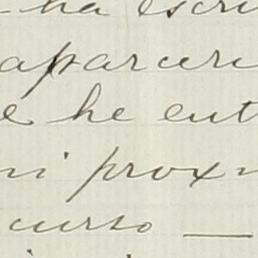 ha escri
aparece
e he ent
ni proxi
curso —